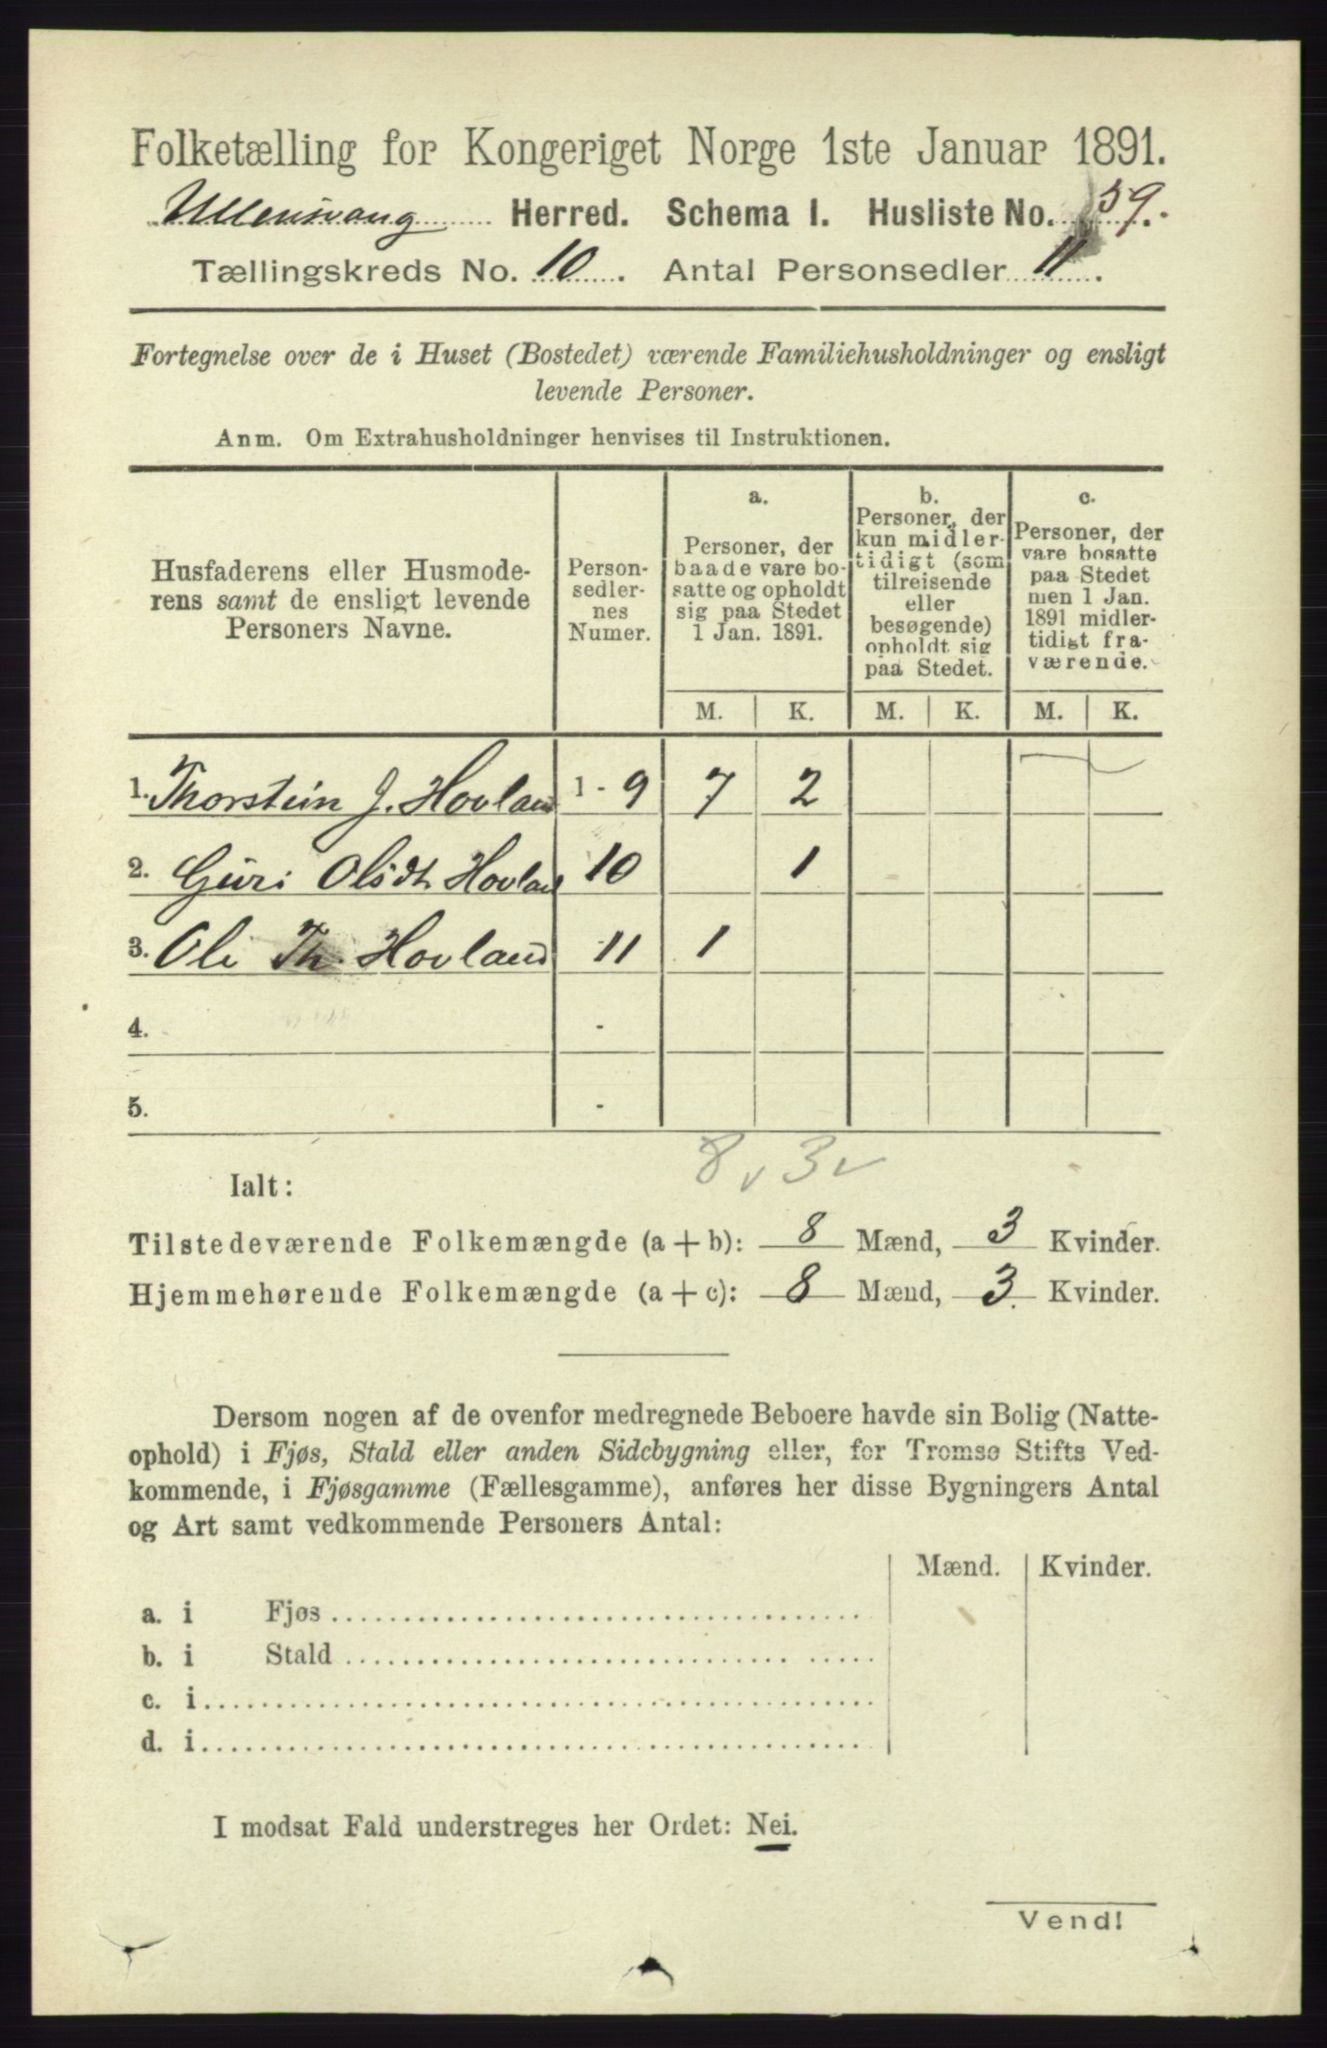 Folketælling for Kongeriget Norge 1ste Januar 1891.
Ullensvang Herred. Schema I. Husliste No. 39.
Tællingskreds No. 10. Antal Personsedler 11.
Fortegnelse over de i Huset (Bostedet) værende Familiehusholdninger og ensligt
levende Personer.
Anm. Om Extrahusholdninger henvises til Instruktionen.
Husfaderens eller Husmode-
rens samt de ensligt levende
Personers Navne.
Person-
sedler-
nes
Numer.
a.
Personer, der
baade vare bo-
satte og opholdt
sig paa Stedet
1 Jan. 1891.
b.
Personer, der
kun midler-
tidigt (som
tilreisende
eller
besøgende)
opholdt sig
paa Stedet.
c.
Personer, der
vare bosatte
paa Stedet
men 1 Jan.
1891 midler-
tidigt fra-
værende.
M. K. M. K. M. K.
1. Thorstein J. Hovland 1 - 9 7 2
2. Guri Olsdt. Hovland 10 1
3. Ole Th. Hovland 11 1
4. -
5. -
8 v 3 v
Ialt:
Tilstedeværende Folkemængde (a + b): 8 Mænd, 3 Kvinder.
Hjemmehørende Folkemængde (a + c): 8 Mænd, 3 Kvinder.
Dersom nogen af de ovenfor medregnede Beboere havde sin Bolig (Natte-
ophold) i Fjøs, Stald eller anden Sidebygning eller, for Tromsø Stifts Ved-
kommende, i Fjøsgamme (Fællesgamme), anføres her disse Bygningers Antal
og Art samt vedkommende Personers Antal:
Mænd. Kvinder.
a. i Fjøs
b. i Stald
c. i
d. i
I modsat Fald understreges her Ordet: Nei.
Vend!